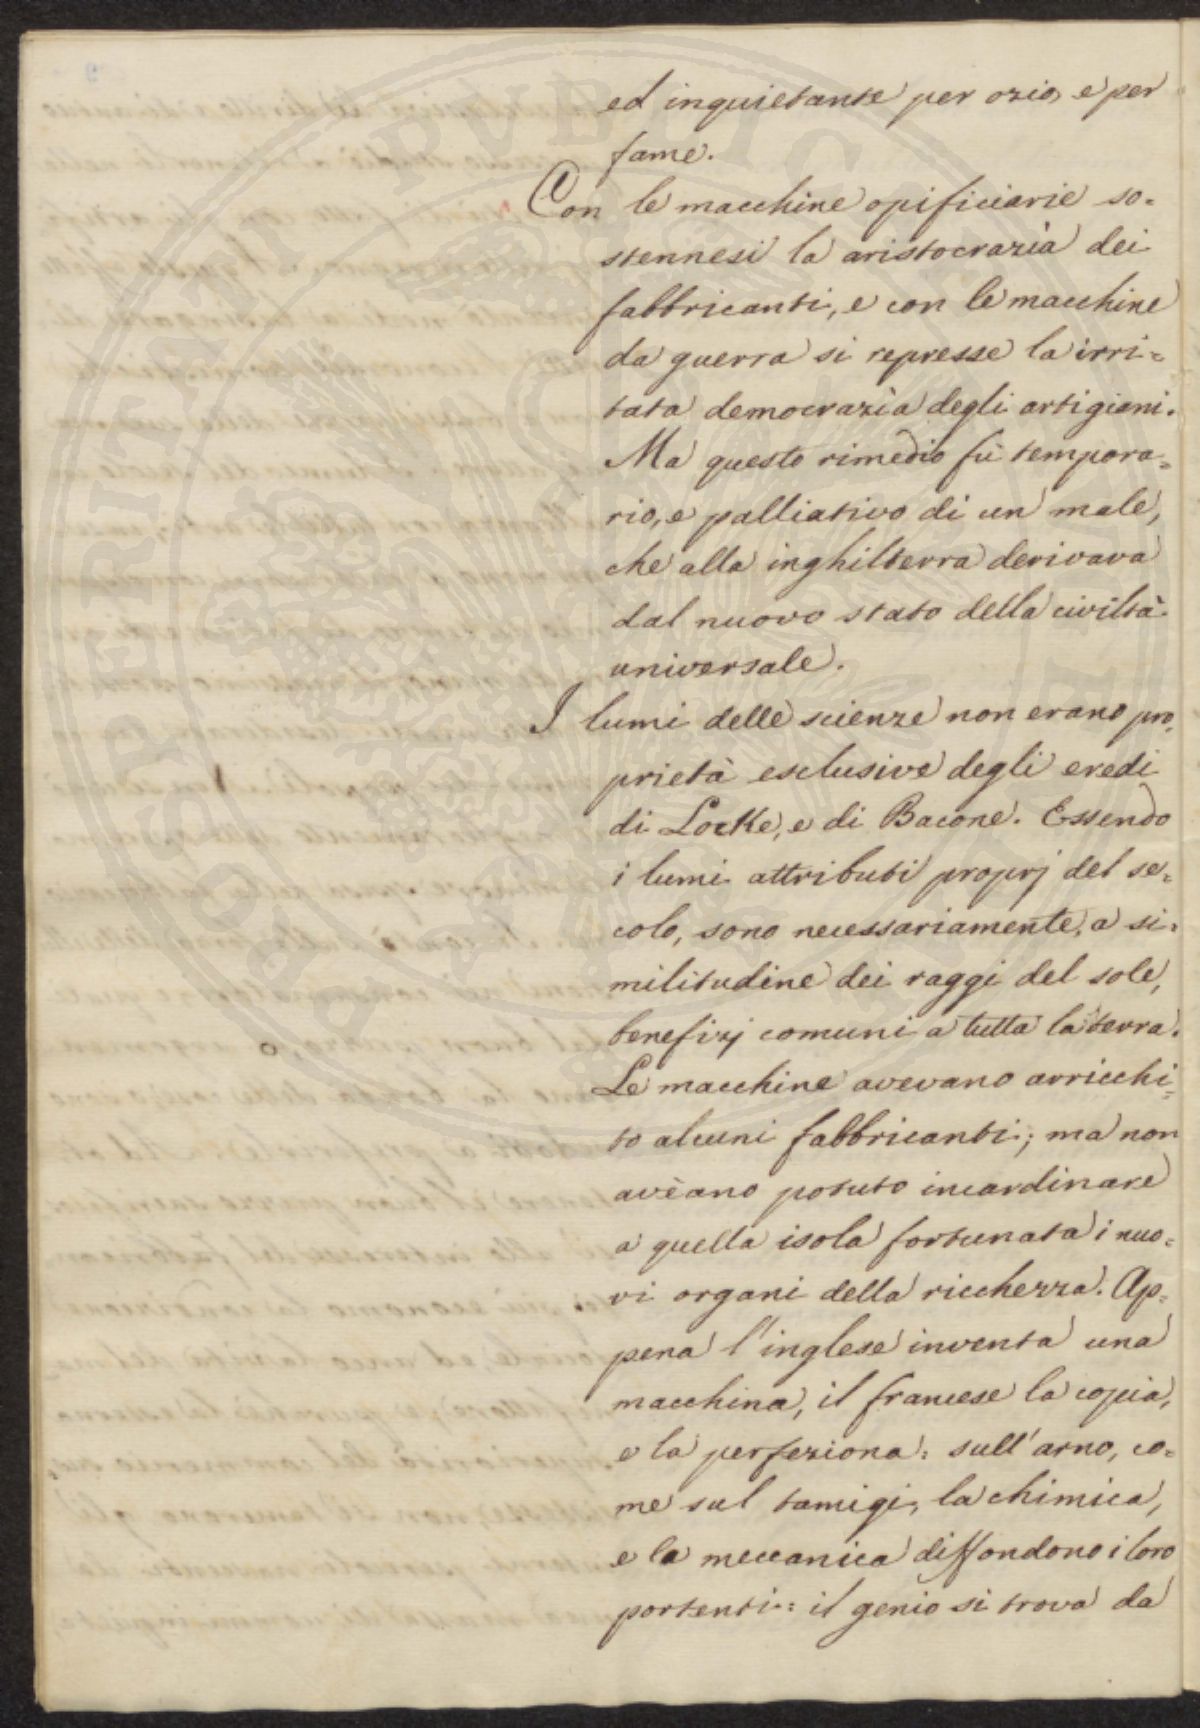 ed inquietante per ozio, e per
fame.
Con le macchine opificiarie so=
stennesi la aristocrazìa dei
fabbricanti, e con le macchine
da guerra si represse la irri=
tata democrazìa degli artigiani.
Ma questo rimedio fù tempora=
rio, e palliativo di un male,
che alla inghilterra derivava
dal nuovo stato della civiltà
universale.
I lumi delle scienze non erano pro=
prietà esclusive degli eredi
di Locke, e di Bacone. Essendo
i lumi attributi proprj del se=
colo, sono necessariamente, a si=
militudine dei raggi del sole,
benefizj comuni a tutta la terra.
Le macchine avevano arricchi=
to alcuni fabbricanti; ma non
avèano potuto incardinare
a quella isola fortunata i nuo=
vi organi della ricchezza. Ap=
pena l'inglese inventa una
macchina, il francese la copia,
e la perfeziona: sull'arno, co=
me sul tamigi, la chimica,
e la meccanica diffondono i loro
portenti: il genio si trova da